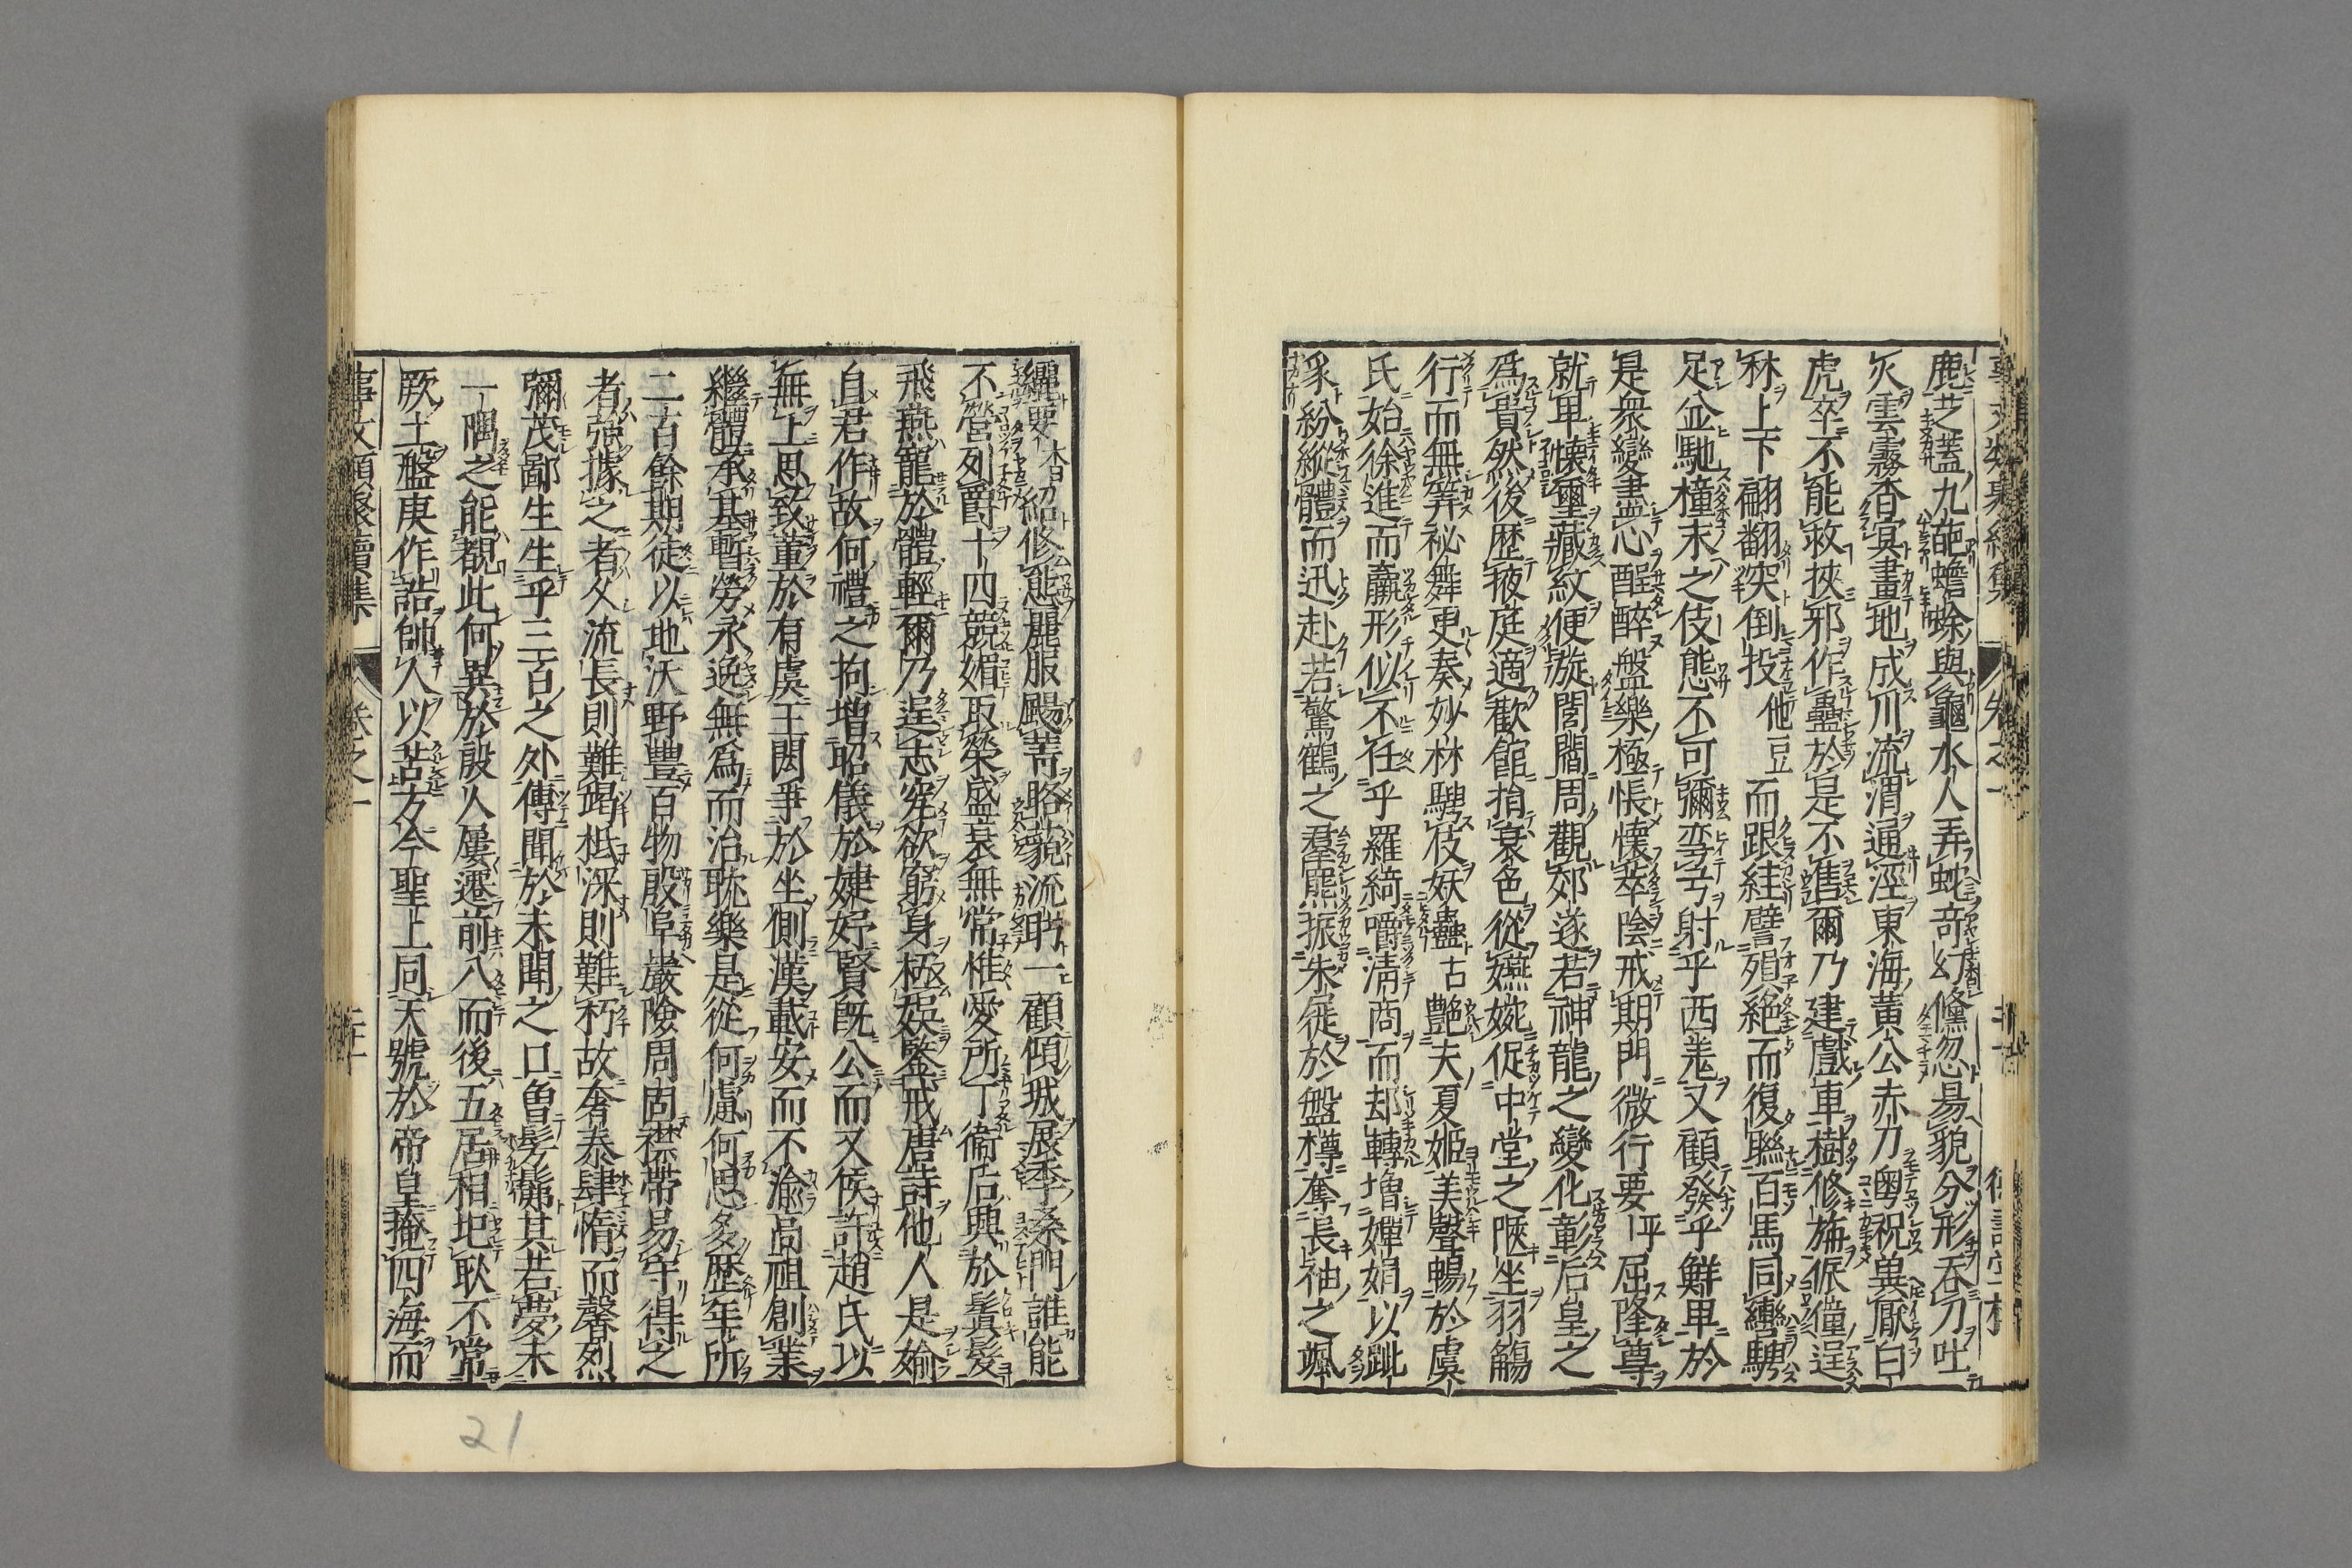 鹿芝蓋九葩蟾蜍與龜水人弄蛇奇幻儵忽昜貌分形吞刀吐
火雲霧杳冥畫地成川流渭通涇東海黃公赤刀粤祝兾厭白
虎卒不能救挾邪作蠱於是不售爾乃建戲車樹修旃侲僮逞
材上下翩翻突倒投他豆而跟絓譬殞絶而復聯百馬同轡騁
足並馳橦末之伎態不可彌彎弓射乎西羗又顧發乎鮮卑於
是衆變盡心酲醉盤樂極悵懷萃陰戒期門微行要乎屈降尊
就卑懷璽藏紋便旋閭閻周觀郊遂若神龍之變化章彰后皇之
爲貴然後歷掖庭適歡館捐衰色從嬿婉促中堂之陿坐羽觴
行而無筭祕舞更奏妙材騁伎妖蠱古艷夫夏姬美聲暢於虞
氏始徐進而羸形似不任乎羅綺嚼淸商而却轉増嬋娟以跐
豸紛縱體而迅赴若驚鶴之羣羆振朱屣於盤樽奮長袖之颯
纚要杳紹修態麗服颺菁眳藐流眄一顧傾城展季桑門誰能
不營列爵十四競媚取榮盛衰無常惟愛所丁衞后興於鬒髮
飛燕寵於體輕爾乃逞志究欲窮身極娯鑒戒唐詩他人是媮
自君作故何禮之拘増昭儀於婕妤賢旣公而又侯許趙氏以
無上思致董於有虞王閎爭於坐側漢載安而不渝高祖創業
繼體承基暫勞永逸無爲而治耽樂是從何慮何思多歷年所
二百餘期徒以地沃野豐百物殷阜巖險周固襟帶易守得之
者强據之者久流長則難竭柢深則難朽故奢泰肆惰而馨烈
彌茂鄙生生乎三百之外傳聞於未聞之口曽髣髴其若夢未
一隅之能覩此何異於殷人屢遷前八而後五居相圯耿不常
厥土盤庚作誥帥人以苦方今聖上同天號於帝皇掩四海而
卷之一
21